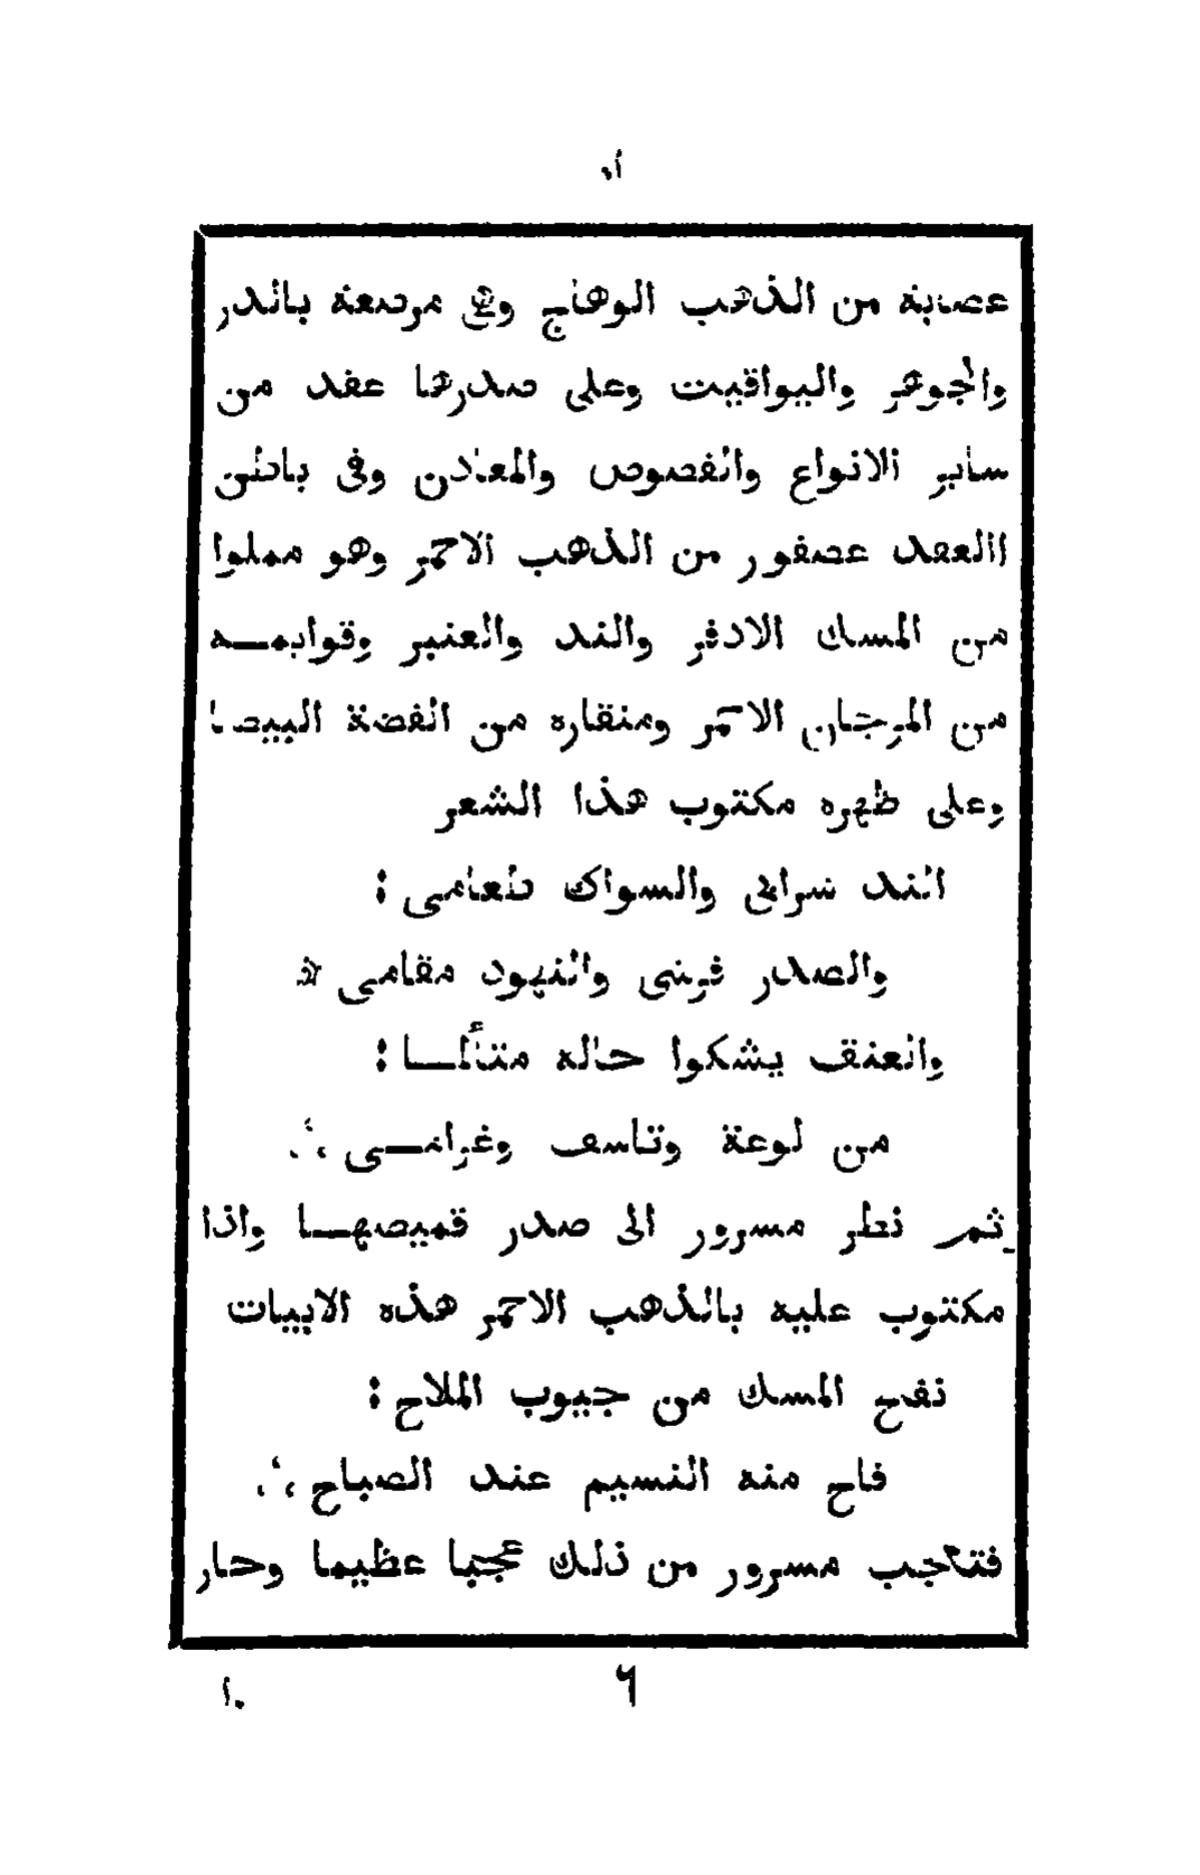 عصابة من الذهب الوهاج وهي مرصعة بالدر
والجوهر واليواقيت وعلى صدرها عقد من
ساير الانواع والفصوص والمعادن وفى باطن
االعقد عصفور من الذهب الاحمر وهو مملوا
من المسك الادفر والند والعنبر وقوايمـــه
من المرجان الاحمر ومنقاره من الفضة البيضا
وعلى ظهره مكتوب هذا الشعر
الند شرابى والسواك طعامى :
والصدر فرشى والنهود مقامى
والعنق يشكوا حاله متألمـــا :
من لوعة وتاسف وغرامـــى
ثم نظر مسرور الى صدر قميصهـــا واذا
مكتوب عليه بالذهب الاحمر هذه الابيات
نفح المسك من جيوب الملاح :
فاح منه النسيم عند الصباح
فتعجب مسرور من ذلك عجبا عظيما وحار
٦